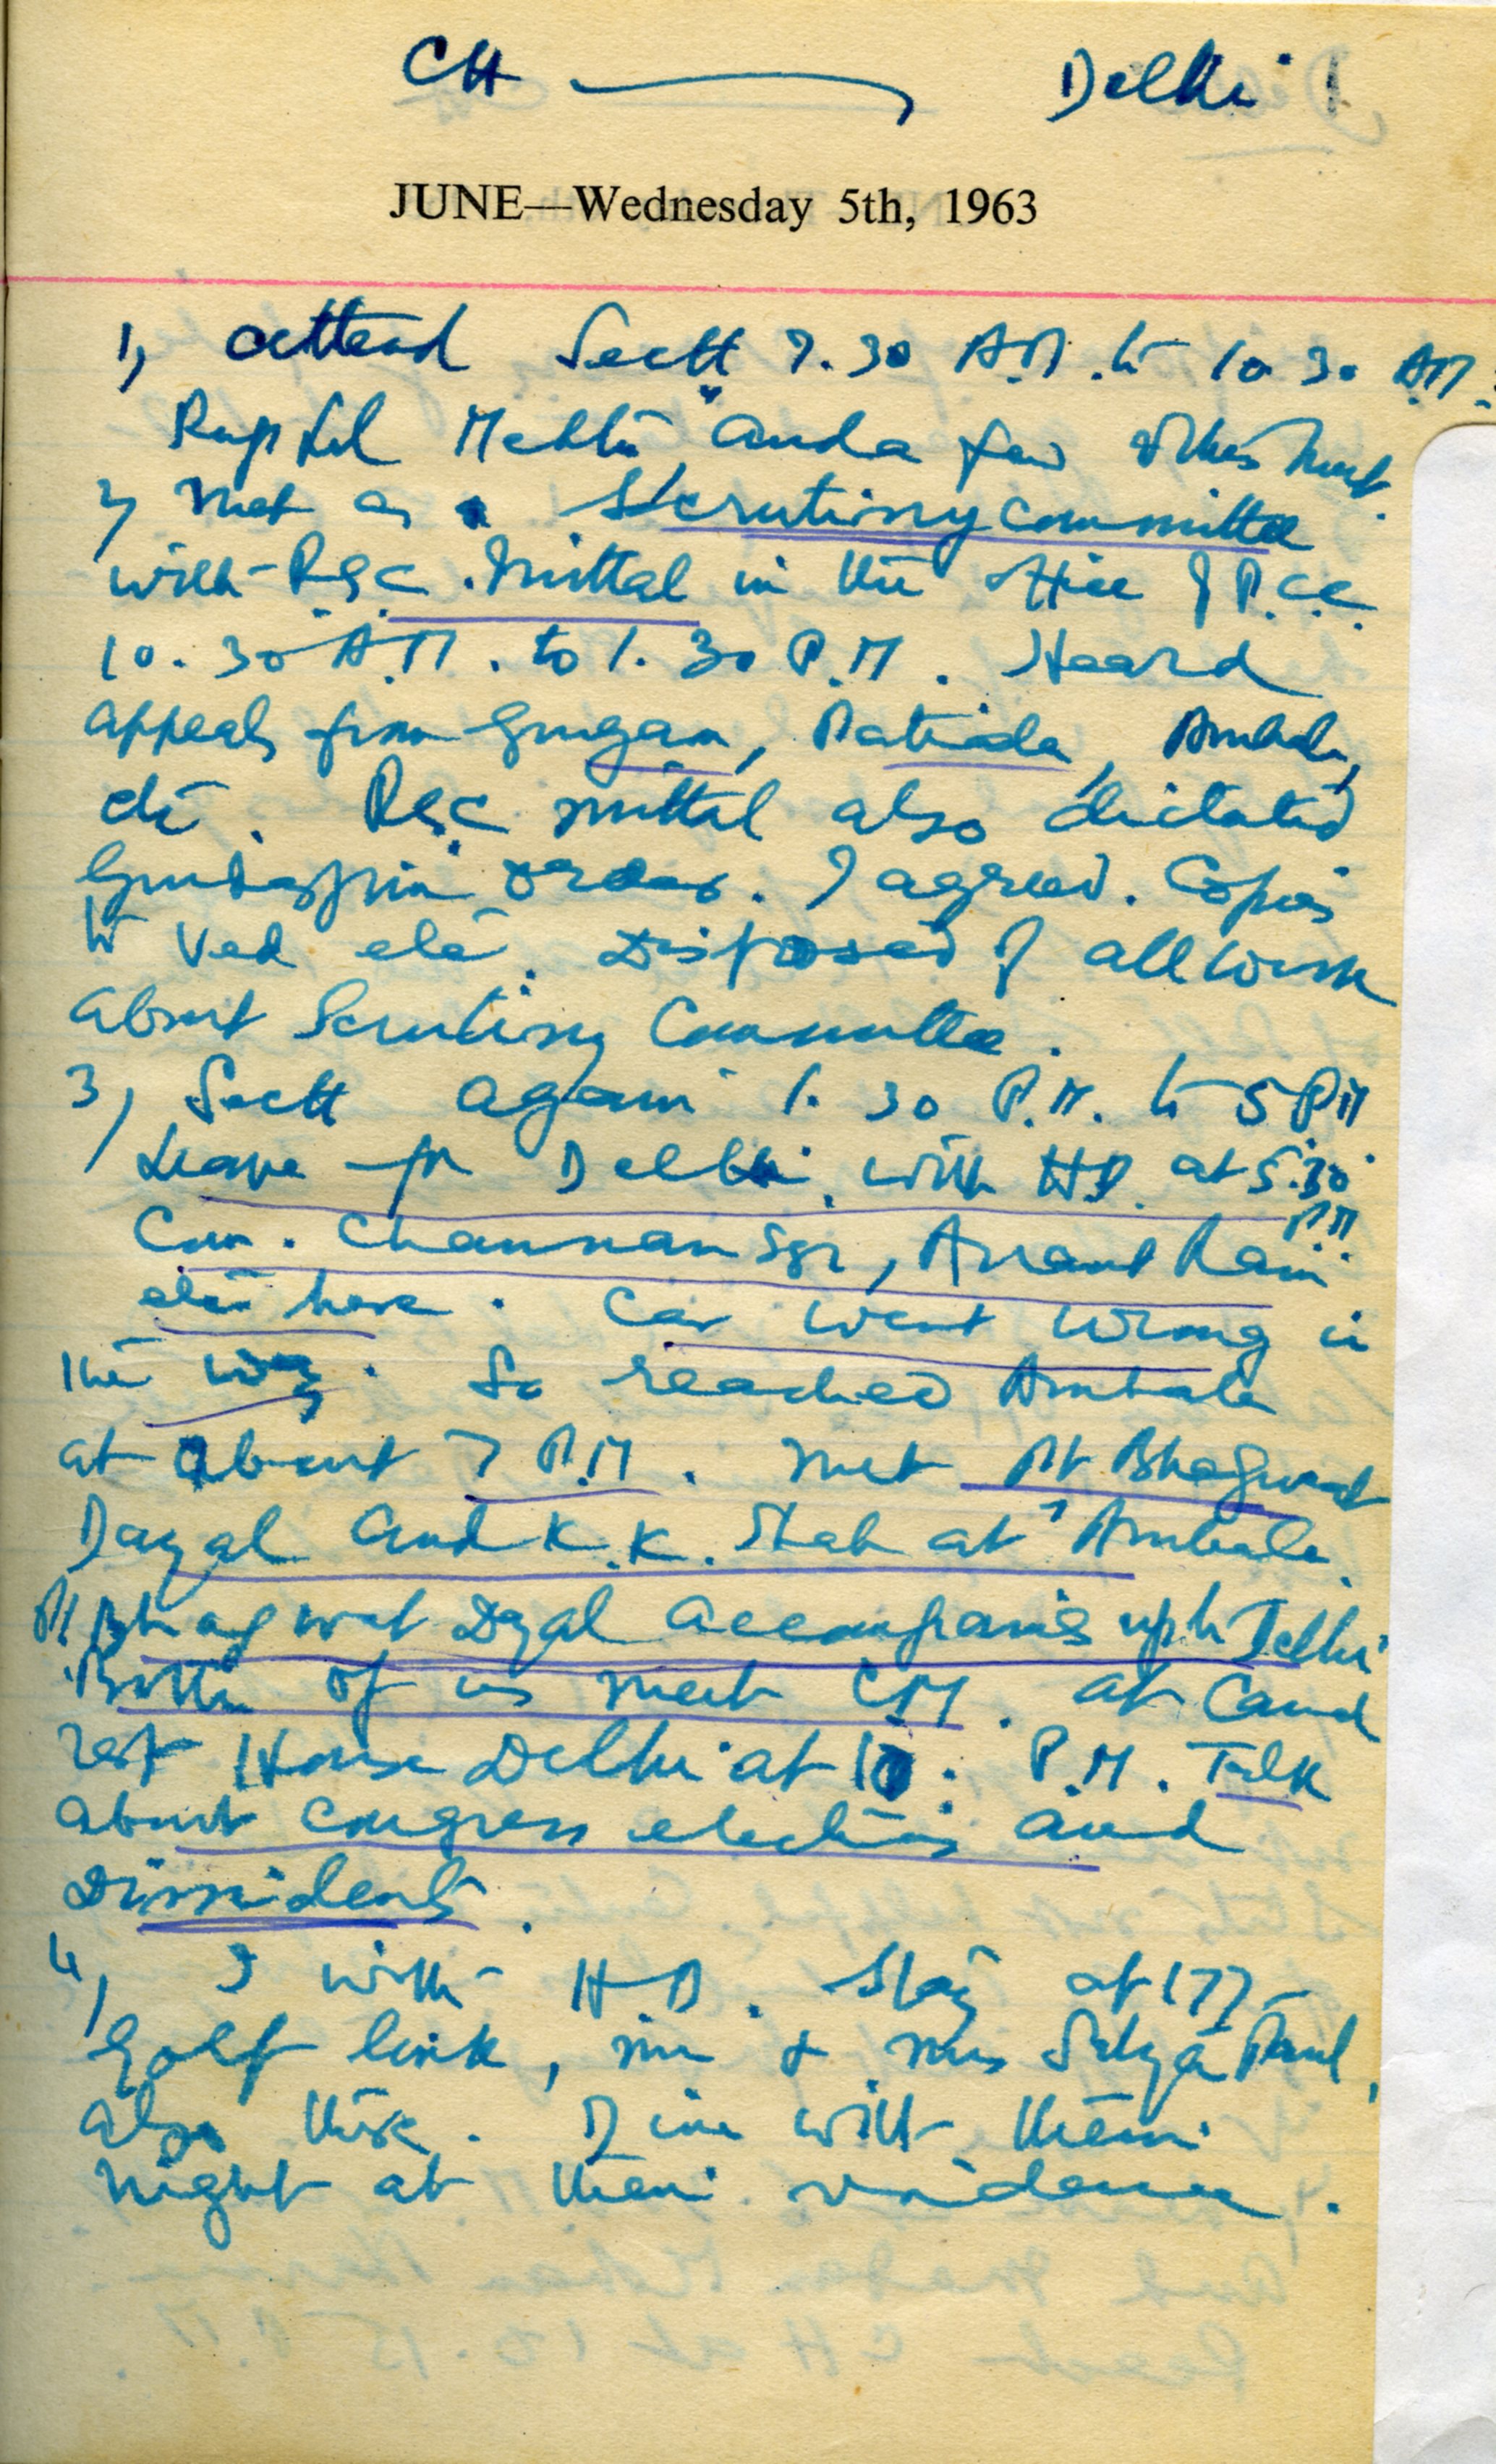 CH — Delhi
JUNE—Wednesday 5th, 1963
1, attend Sectt 7.30 A.M. to 10 30 AM.
Rup Lal Mehta and a few others meet.
2, Met as a Scrutiny Committee
with R.S.C. Mittal in the office of P.C.C.
10.30 A.M. to 1.30 P.M. Heard
appeals from Gurgaon, Patiala, Ambala,
etc. R.S.C Mittal also dictated
Gurdaspur orders. I agreed. Copies
to Ved etc. Disposed of all work
about Scrutiny Committee.
3, Sectt again 1.30 P.M. to 5 PM
Leave for Delhi with H.D. at 5.30 P.M.
Com. Channan Sgr, Anant Ram
etc here. Car went wrong in
the way. So reached Ambala
at about 7 P.M. Met Pt Bhagwat
Dayal and K.K. Shah at Ambala.
Pt Bhagwat Dyal accompanies upto Delhi
Both of us meet C.M. at Canal
rest House Delhi at 10. P.M. Talk
about Congress elections and
Dissidents.
4, I with H.D. Stay at 177-
Golf link, Mr & Mrs Satya Paul,
also there. Dine with them
night at their residence.